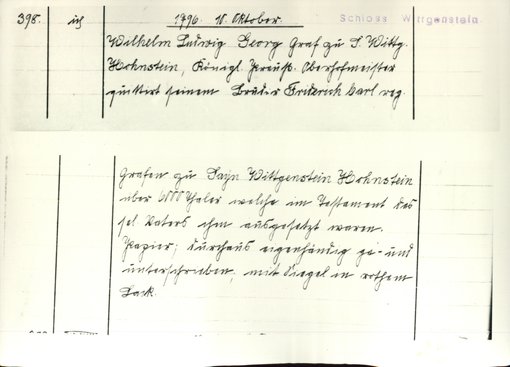 398. ich 1796. 10. Oktober. Schloss Wittgenstein.
Wilhelm Ludwig Georg Graf zu S. Wittg.
Hohnstein, Königl. Preuß. Oberhofmeister
quittirt seinem Bruder Friderich Carl reg.
Grafen zu Sayn Wittgenstein Hohnstein
über 6000 Thaler welche im Testament des
sel. Vaters ihm ausgesetzt waren.
Papier; durchaus eigenhändig ge- und
unterschrieben, mit Siegel in rothem
Lack.